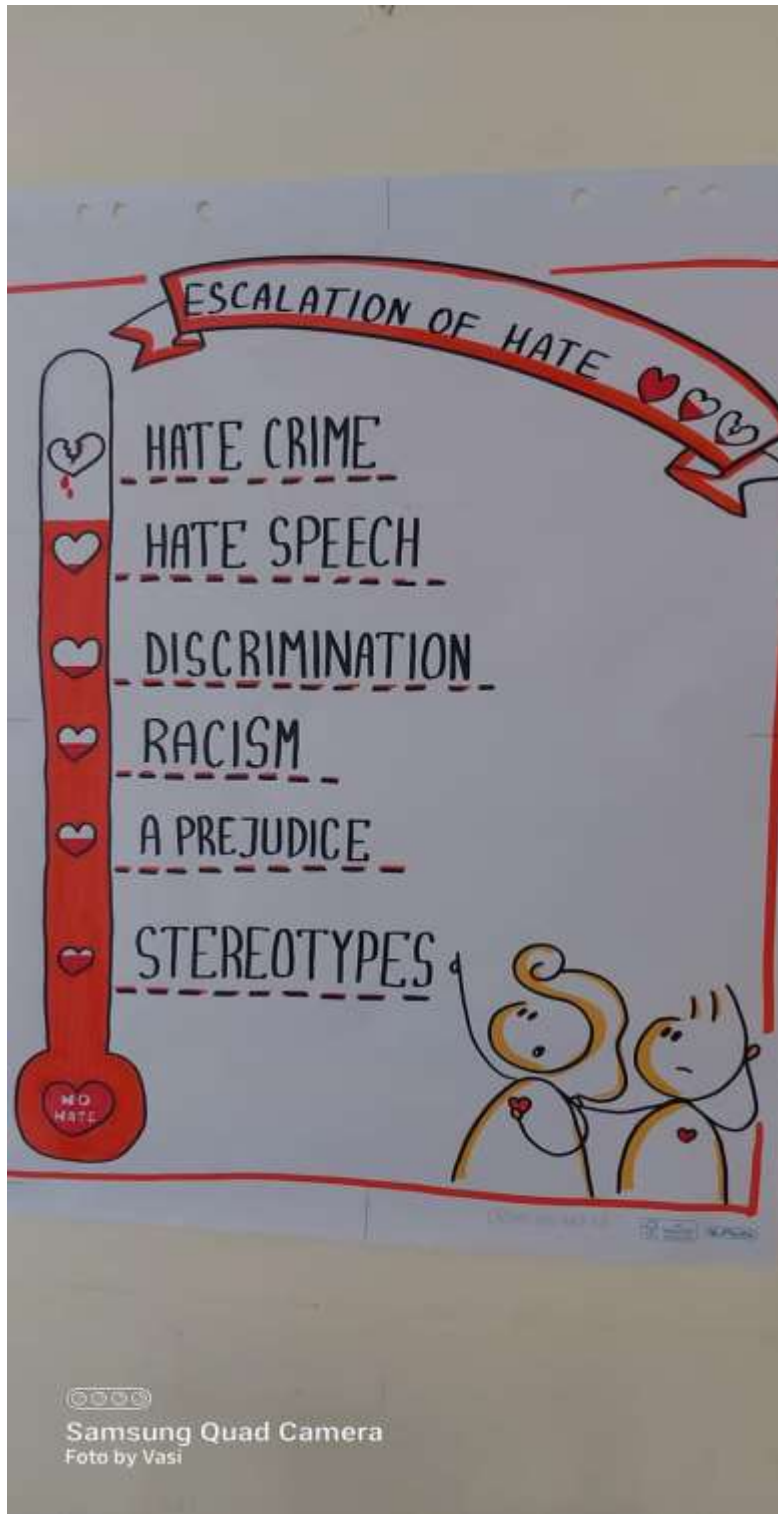 ESCALATION OF HATE
HATE CRIME
HATE SPEECH
DISCRIMINATION
RACISM
A PREJUDICE
STEREOTYPES
NO
HATE
Samsung Quad Camera
Foto by Vasi